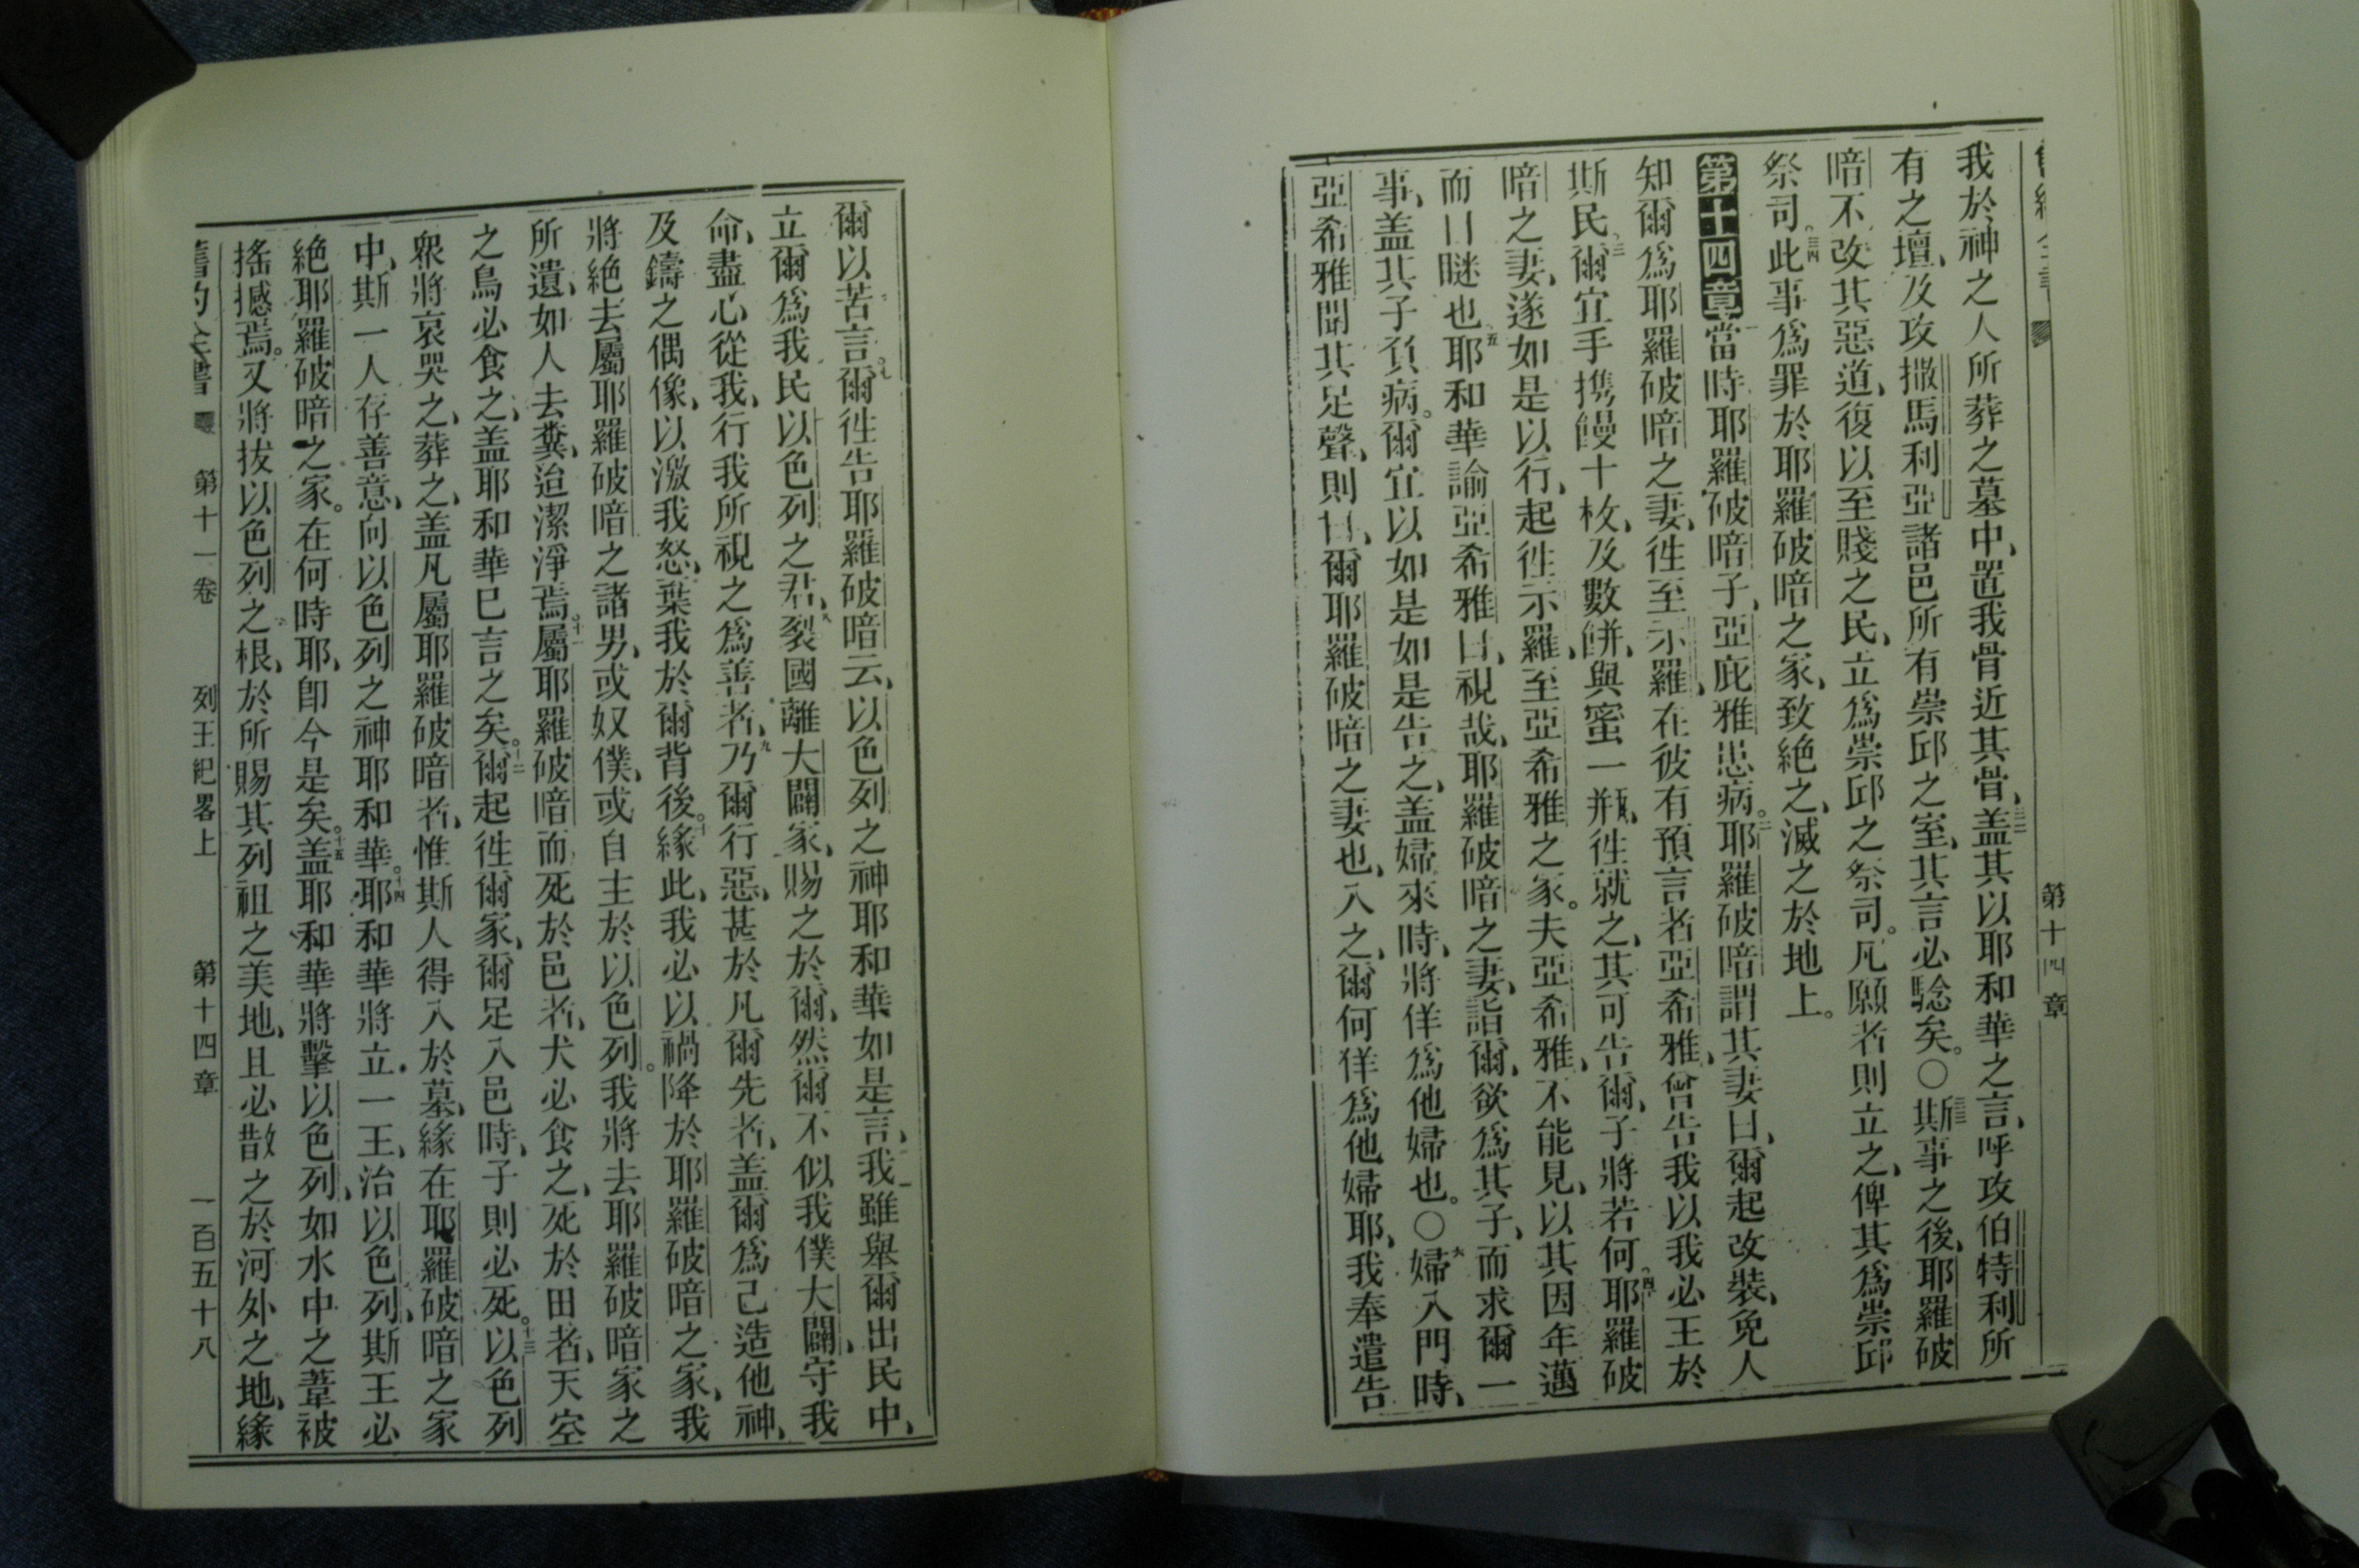 第十四章
我於神之人所葬之墓中、置我骨近其骨、三二蓋其以耶和華之言、呼攻伯特利所
有之壇、及攻撒馬利亞諸邑所有崇邱之室、其言必騐矣。○三三斯事之後、耶羅破
暗不改其惡道、復以至賤之民、立爲崇邱之祭司。凡願者則立之、俾其爲崇邱
祭司。三四此事爲罪於耶羅破暗之家、致絶之、滅之於地上。
第十四章一當時耶羅破暗子、亞庇雅患病。二耶羅破暗謂其妻曰、爾起改裝、免人
知爾爲耶羅破暗之妻、徃至示羅、在彼有預言者亞希雅、曾告我以我必王於
斯民、三爾宜手携饅十枚、及數餅、與蜜一瓶、徃就之、其可告爾、子將若何、四耶羅破
暗之妻、遂如是以行、起徃示羅、至亞希雅之家。夫亞希雅、不能見、以其因年邁
而目瞇也、五耶和華諭亞希雅曰、視哉、耶羅破暗之妻、詣爾、欲爲其子、而求爾一
事、蓋其子負病。爾宜以如是如是告之、蓋婦來時、將佯爲他婦也。○六婦入門時、
亞希雅聞其足聲、則曰、爾耶羅破暗之妻也、入之、爾何佯爲他婦耶、我奉遣告
爾以苦言。七爾徃告耶羅破暗云、以色列之神耶和華如是言、我雖舉爾出民中、
立爾爲我民以色列之君、八裂國離大闢家、賜之於爾、然爾不似我僕大闢、守我
命、盡心從我、行我所視之爲善者、九乃爾行惡、甚於凡爾先者、蓋爾爲己造他神、
及鑄之偶像、以激我怒、棄我於爾背後。十緣此、我必以禍降於耶羅破暗之家、我
將絶去屬耶羅破暗之諸男、或奴僕、或自主於以色列。我將去耶羅破暗家之
所遺、如人去糞、迨潔淨焉。十一屬耶羅破暗而死於邑者、犬必食之、死於田者、天空
之鳥必食之、蓋耶和華已言之矣。十二爾起徃爾家、爾足入邑時、子則必死。十三以色列
衆將哀哭之、葬之、蓋凡屬耶羅破暗者、惟斯人得入於墓、緣在耶羅破暗之家
中、斯一人存善意、向以色列之神耶和華。十四耶和華將立一王、治以色列、斯王必
絶耶羅破暗之家。在何時耶、卽今是矣。十五蓋耶和華將擊以色列、如水中之葦被
搖撼焉。又將拔以色列之根、於所賜其列祖之美地、且必散之於河外之地、緣
舊約全書 第十一卷 列王紀畧上 第十四章 一百五十八